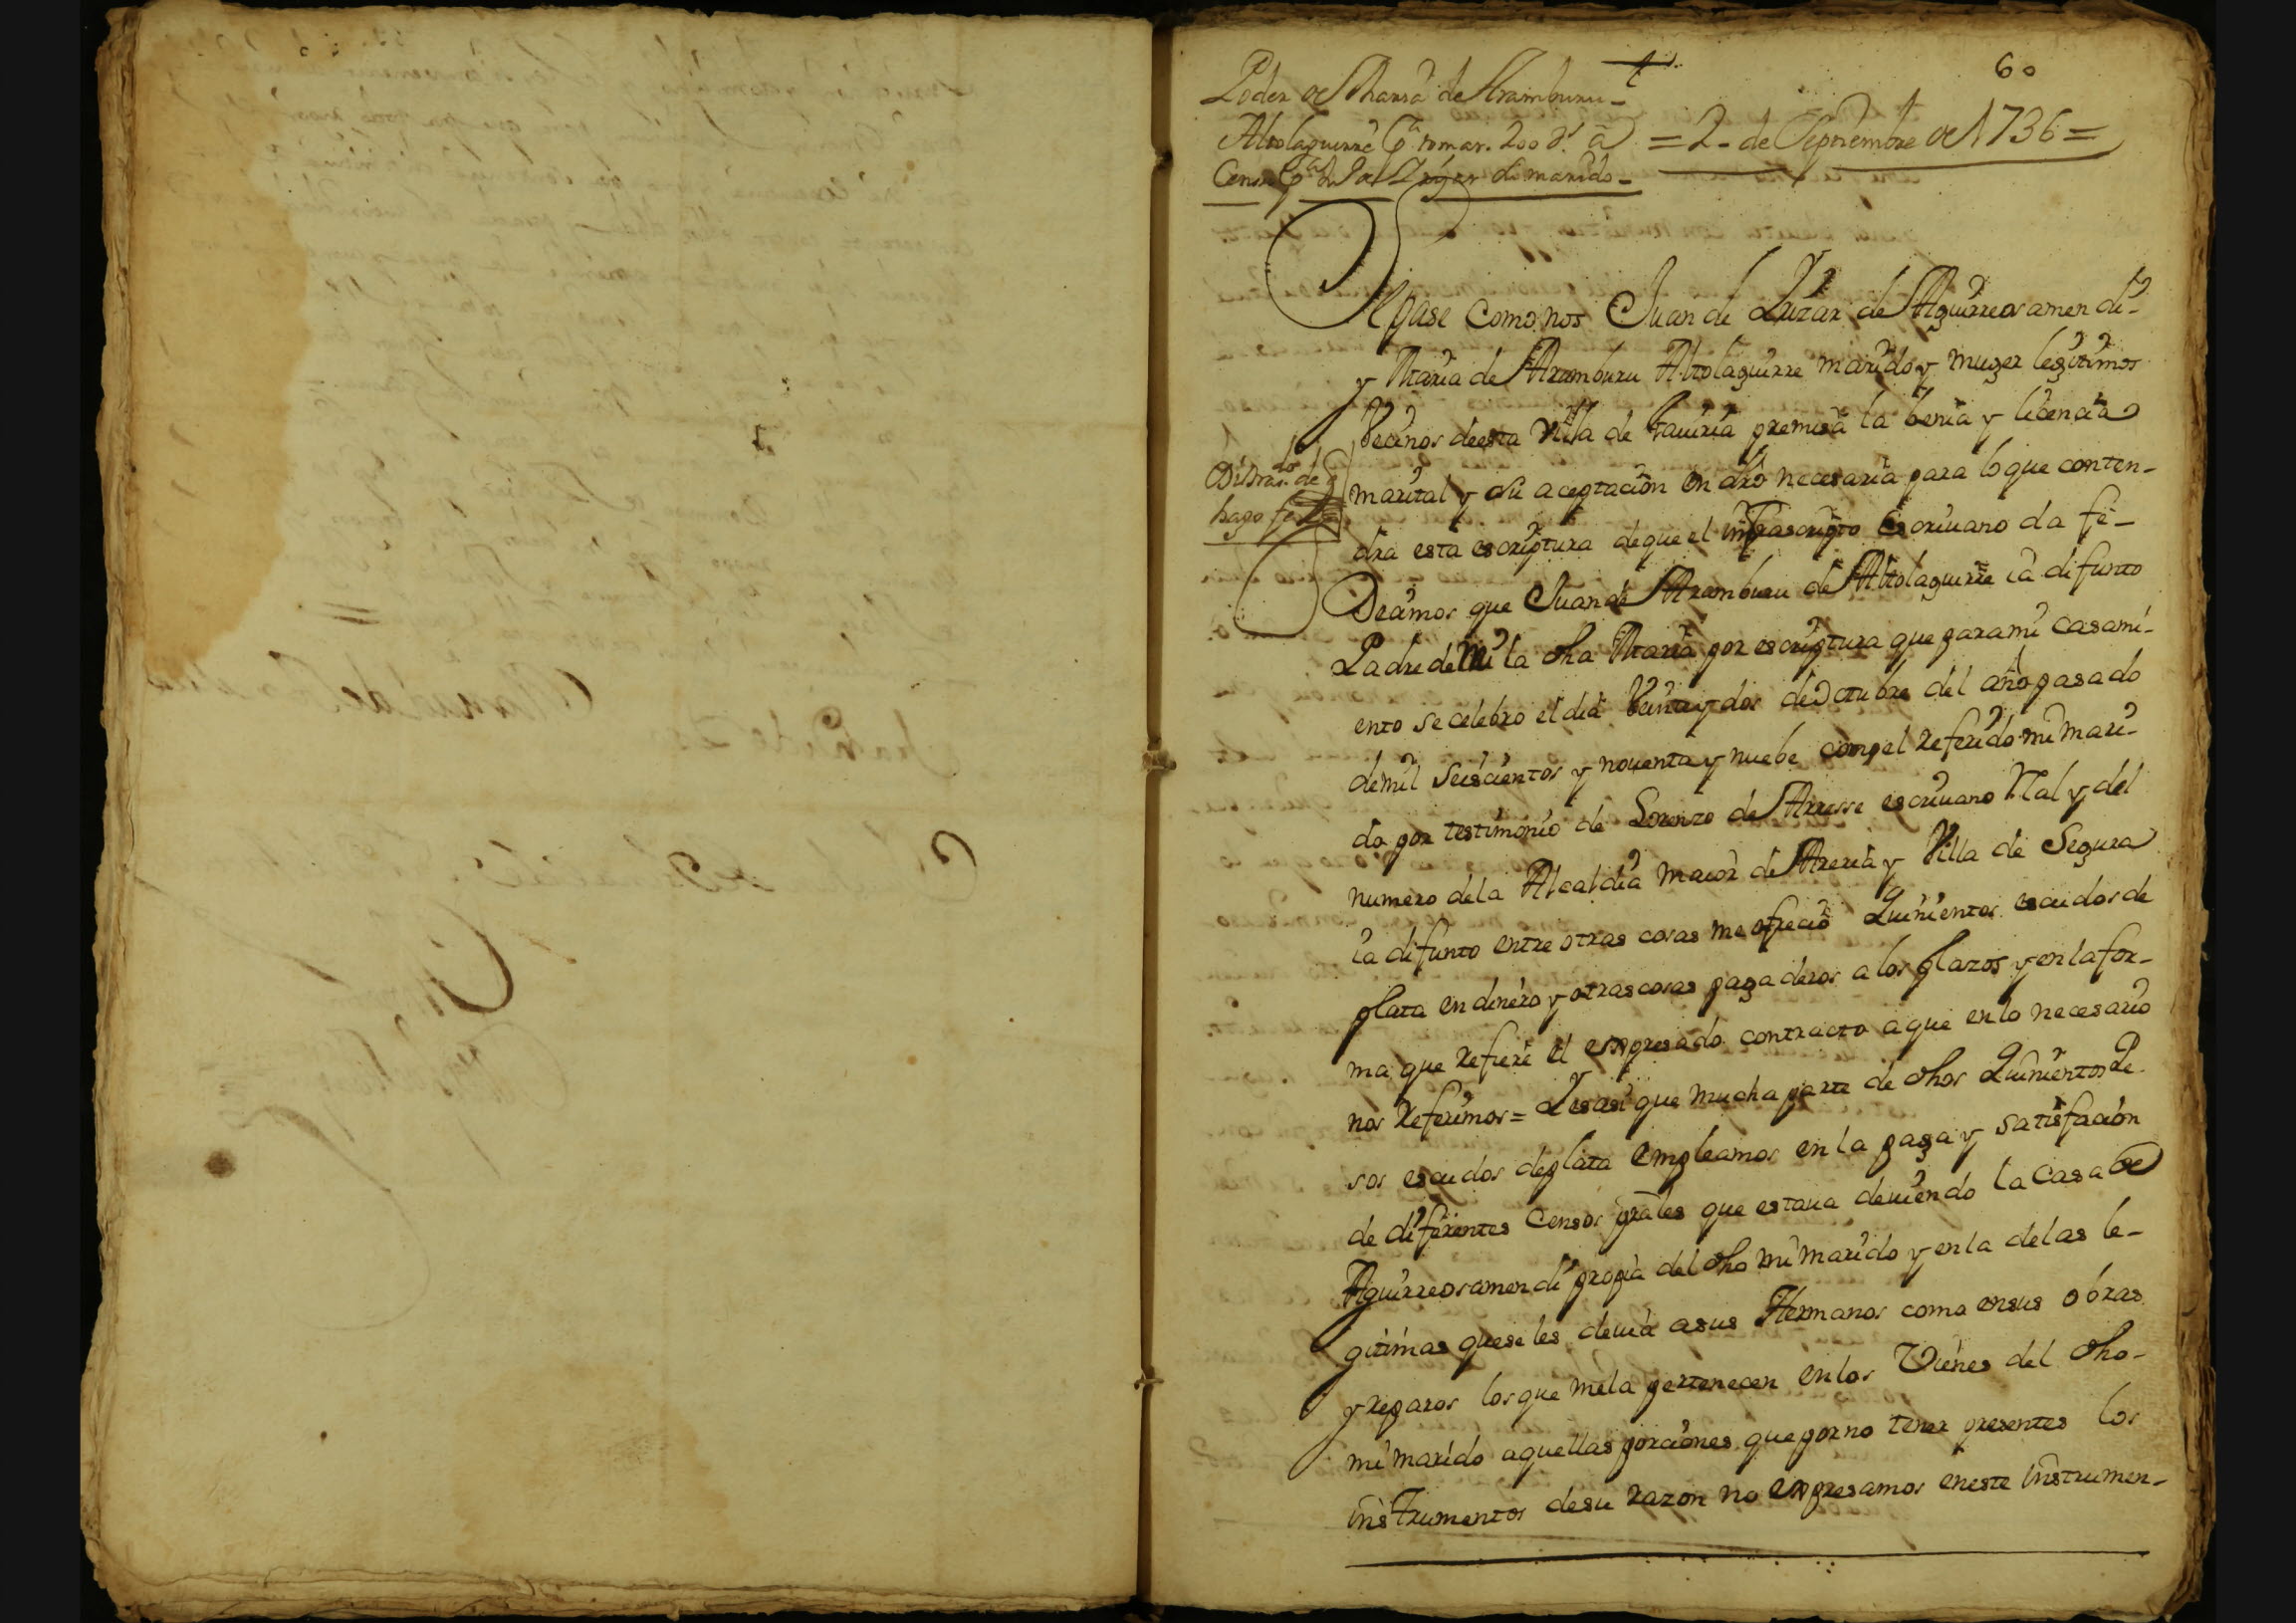 60
Poder de Maria de Aramburu
Altolaguirre Pa tomar 200 ds. a
Censo de Juan de Luzar su marido
= 2 de Septiembre de 1736 =
Sepase como nos Juan de Luzar de Aguirreosamendi-
y Maria de Aramburu Altolaguirre marido y muger legitimos
Vecinos de esta Villa de Gauiria premisa la benia y licencia
marital y su aceptacion en dro necesaria para lo que conten-
dra esta escriptura de que el infrascripto escriuano da fe-
hago fe
Decimos que Juan de Aramburu de Altolaguirre ia difunto
Padre de Mi la dha Maria por escriptura que para mi casami-
ento se celebro el dia Veinte y dos de Octubre del año pasado
de mil seiscientos y nouenta y nuebe con el referido mi mari-
do por testimonio de Lorenzo de Arresse escriuano Rl y del
numero de la Alcaldia maior de Areria y Villa de Segura
ia difunto entre otras cosas me ofrecio Quinientos escudos de
plata en dinero y otras cosas pagaderos a los plazos y en la for-
ma que refiere el expresado contracto a que en lo necesario
nos referimos = Y es asi que mucha parte de dhos Quinientos
escudos de plata empleamos en la paga y satisfacion
de diferentes Censos prales que estaua deuiendo la Casa de
Aguirreosamendi propia del dho mi marido y en la de las le-
gitimas que se les deuia a sus Hermanos como en sus obras
y reparos los que me la pertenecen en los Vienes del dho-
mi marido aquellas porciones que por no tener presentes los
instrumentos de su razon no expresamos en este instrumen-